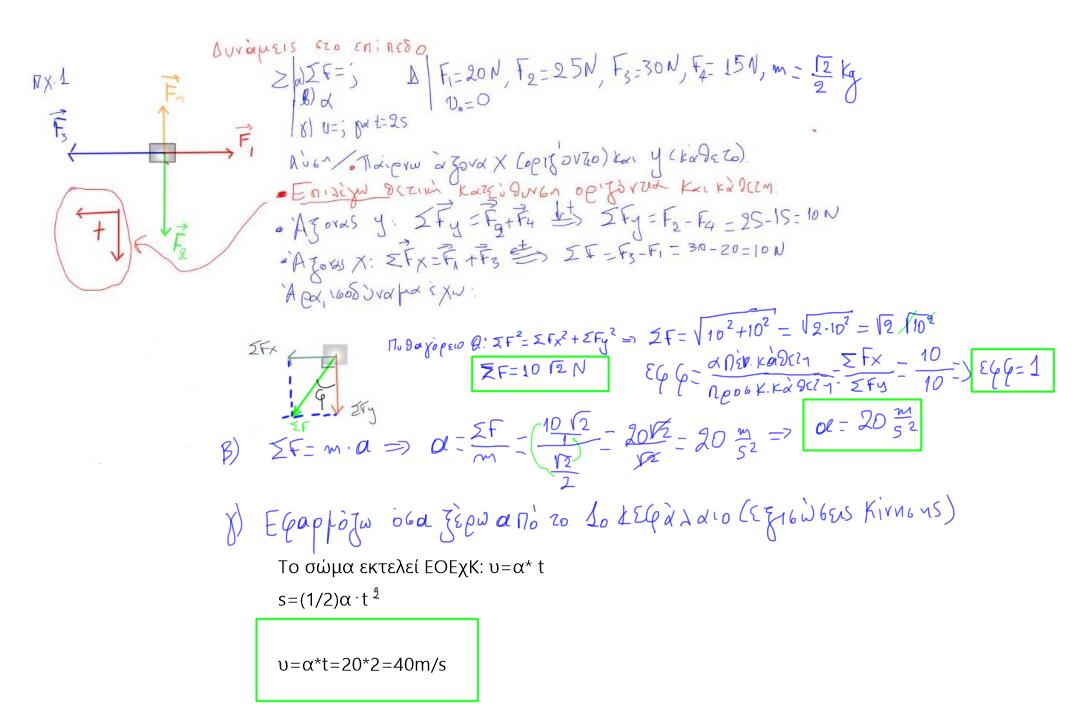 Δυνάμεις στο επίπεδο
πχ.1
Ζ | α) ΣF=; Δ | F₁=20N, F₂=25N, F₃=30N, F₄=15N, m=√2/2 kg
β) α υ₀=0
γ) υ=; για t=2s
F₄
F₃
F₁
F₂
+
Λύση/. Παίρνω άξονα x (οριζόντιο) και y (κάθετο).
• Επιλέγω θετική κατεύθυνση οριζόντια και κάθετη.
• Άξονας y: ΣFy=F₂+F₄ ⇒ ΣFy=F₂-F₄=25-15=10N
• Άξονας x: ΣFx=F₁+F₃ ⇒ ΣF=F₃-F₁=30-20=10N
Άρα, ισοδύναμα έχω:
Πυθαγόρειο Θ: ΣF²=ΣFx²+ΣFy² ⇒ ΣF=√10²+10²=√2·10²=√2 √10²
ΣFx
ΣF=10√2 N
εφφ=απέν.κάθετη/προσκ.κάθετη=ΣFx/ΣFy=10/10=> εφφ=1
φ
ΣFy
ΣF
β) ΣF=m·a ⇒ α=ΣF/m=(10√2/1)/(√2/2)=20√2/√2=20 m/s² ⇒ α=20 m/s²
γ) Εφαρμόζω όσα ξέρω από το 1ο κεφάλαιο (εξισώσεις κίνησης)
Το σώμα εκτελεί ΕΟΕχΚ: υ=α* t
s=(1/2)α·t²
υ=α*t=20*2=40m/s